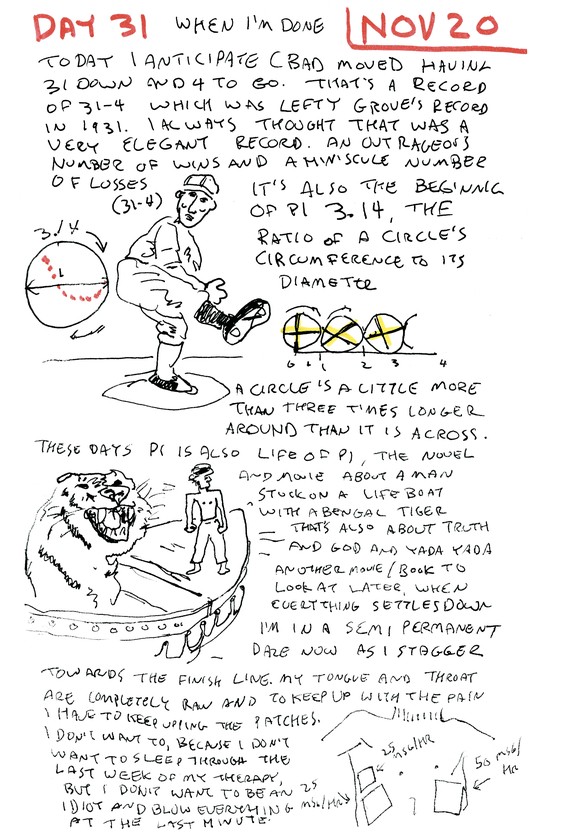 DAY 31 WHEN I'M DONE NOV 20
TODAY I ANTICIPATE CBAD MOVED HAVING
31 DOWN AND 4 TO GO. THAT'S A RECORD
OF 31-4 WHICH WAS LEFTY GROVE'S RECORD
IN 1931. I ALWAYS THOUGHT THAT WAS A
VERY ELEGANT RECORD. AN OUTRAGEOUS
NUMBER OF WINS AND A MINISCULE NUMBER
OF LOSSES
(31-4)
IT'S ALSO THE BEGINNING
OF PI 3.14, THE
RATIO OF A CIRCLE'S
CIRCUMFERENCE TO ITS
DIAMETER
3.14
1
0 1 2 3 4
A CIRCLE IS A LITTLE MORE
THAN THREE TIMES LONGER
AROUND THAN IT IS ACROSS.
THESE DAYS PI IS ALSO LIFE OF PI, THE NOVEL
AND MOVIE ABOUT A MAN
STUCK ON A LIFE BOAT
WITH A BENGAL TIGER
THAT'S ALSO ABOUT TRUTH
AND GOD AND YADA YADA
ANOTHER MOVIE/BOOK TO
LOOK AT LATER, WHEN
EVERYTHING SETTLES DOWN
I'M IN A SEMI PERMANENT
DAZE NOW AS I STAGGER
TOWARDS THE FINISH LINE. MY TONGUE AND THROAT
ARE COMPLETELY RAW AND TO KEEP UP WITH THE PAIN
I HAVE TO KEEP UPPING THE PATCHES.
I DON'T WANT TO, BECAUSE I DON'T
WANT TO SLEEP THROUGH THE
LAST WEEK OF MY THERAPY,
BUT I DON'T WANT TO BE AN
IDIOT AND BLOW EVERYTHING
AT THE LAST MINUTE.
25 msG/HR
25 msG/HR
50 msG/HR